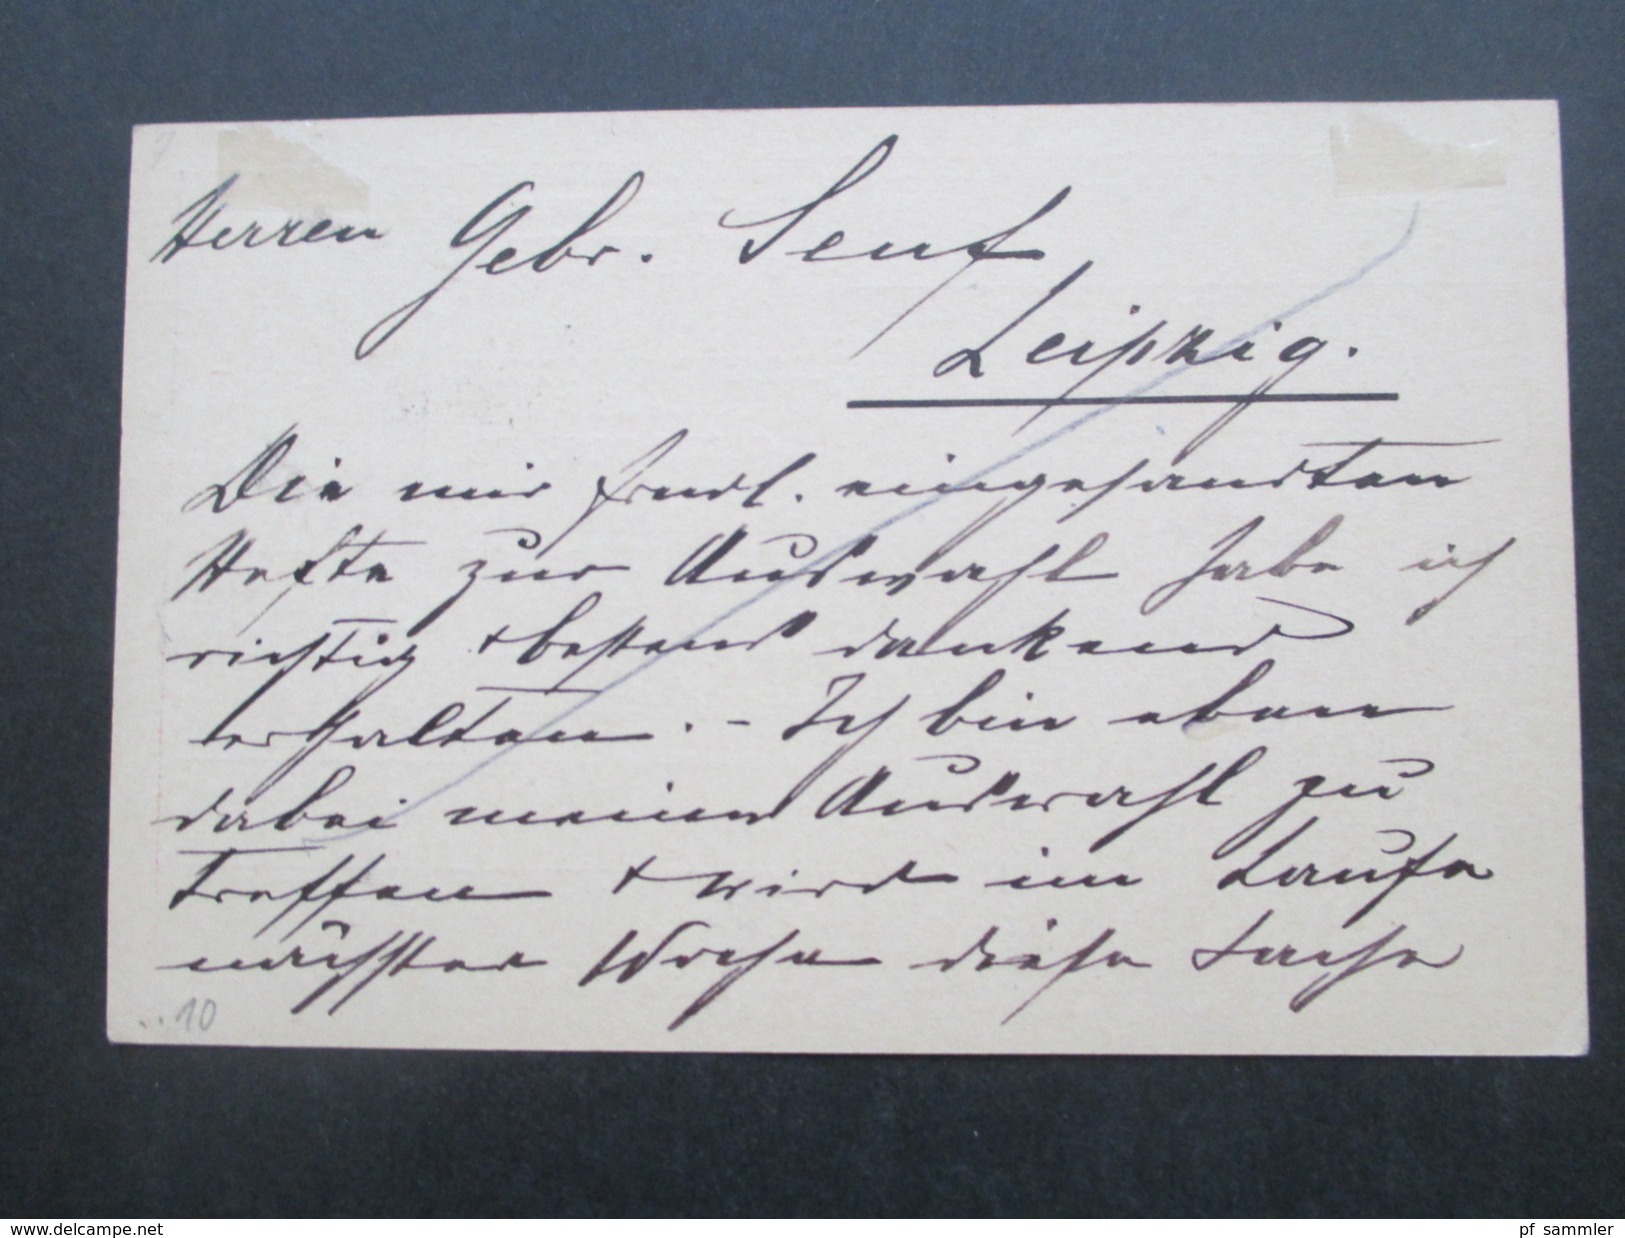 Herren Gebr. Senf
Leipzig.
Die mir frndl. eingesandten
Hefte zur Auswahl habe ich
richtig + bestens dankend
erhalten. - Ich bin eben
dabei meine Auswahl zu
treffen + wird im Laufe
nächster Woche diese Sache
..10
www.delcampe.net
pf_sammler